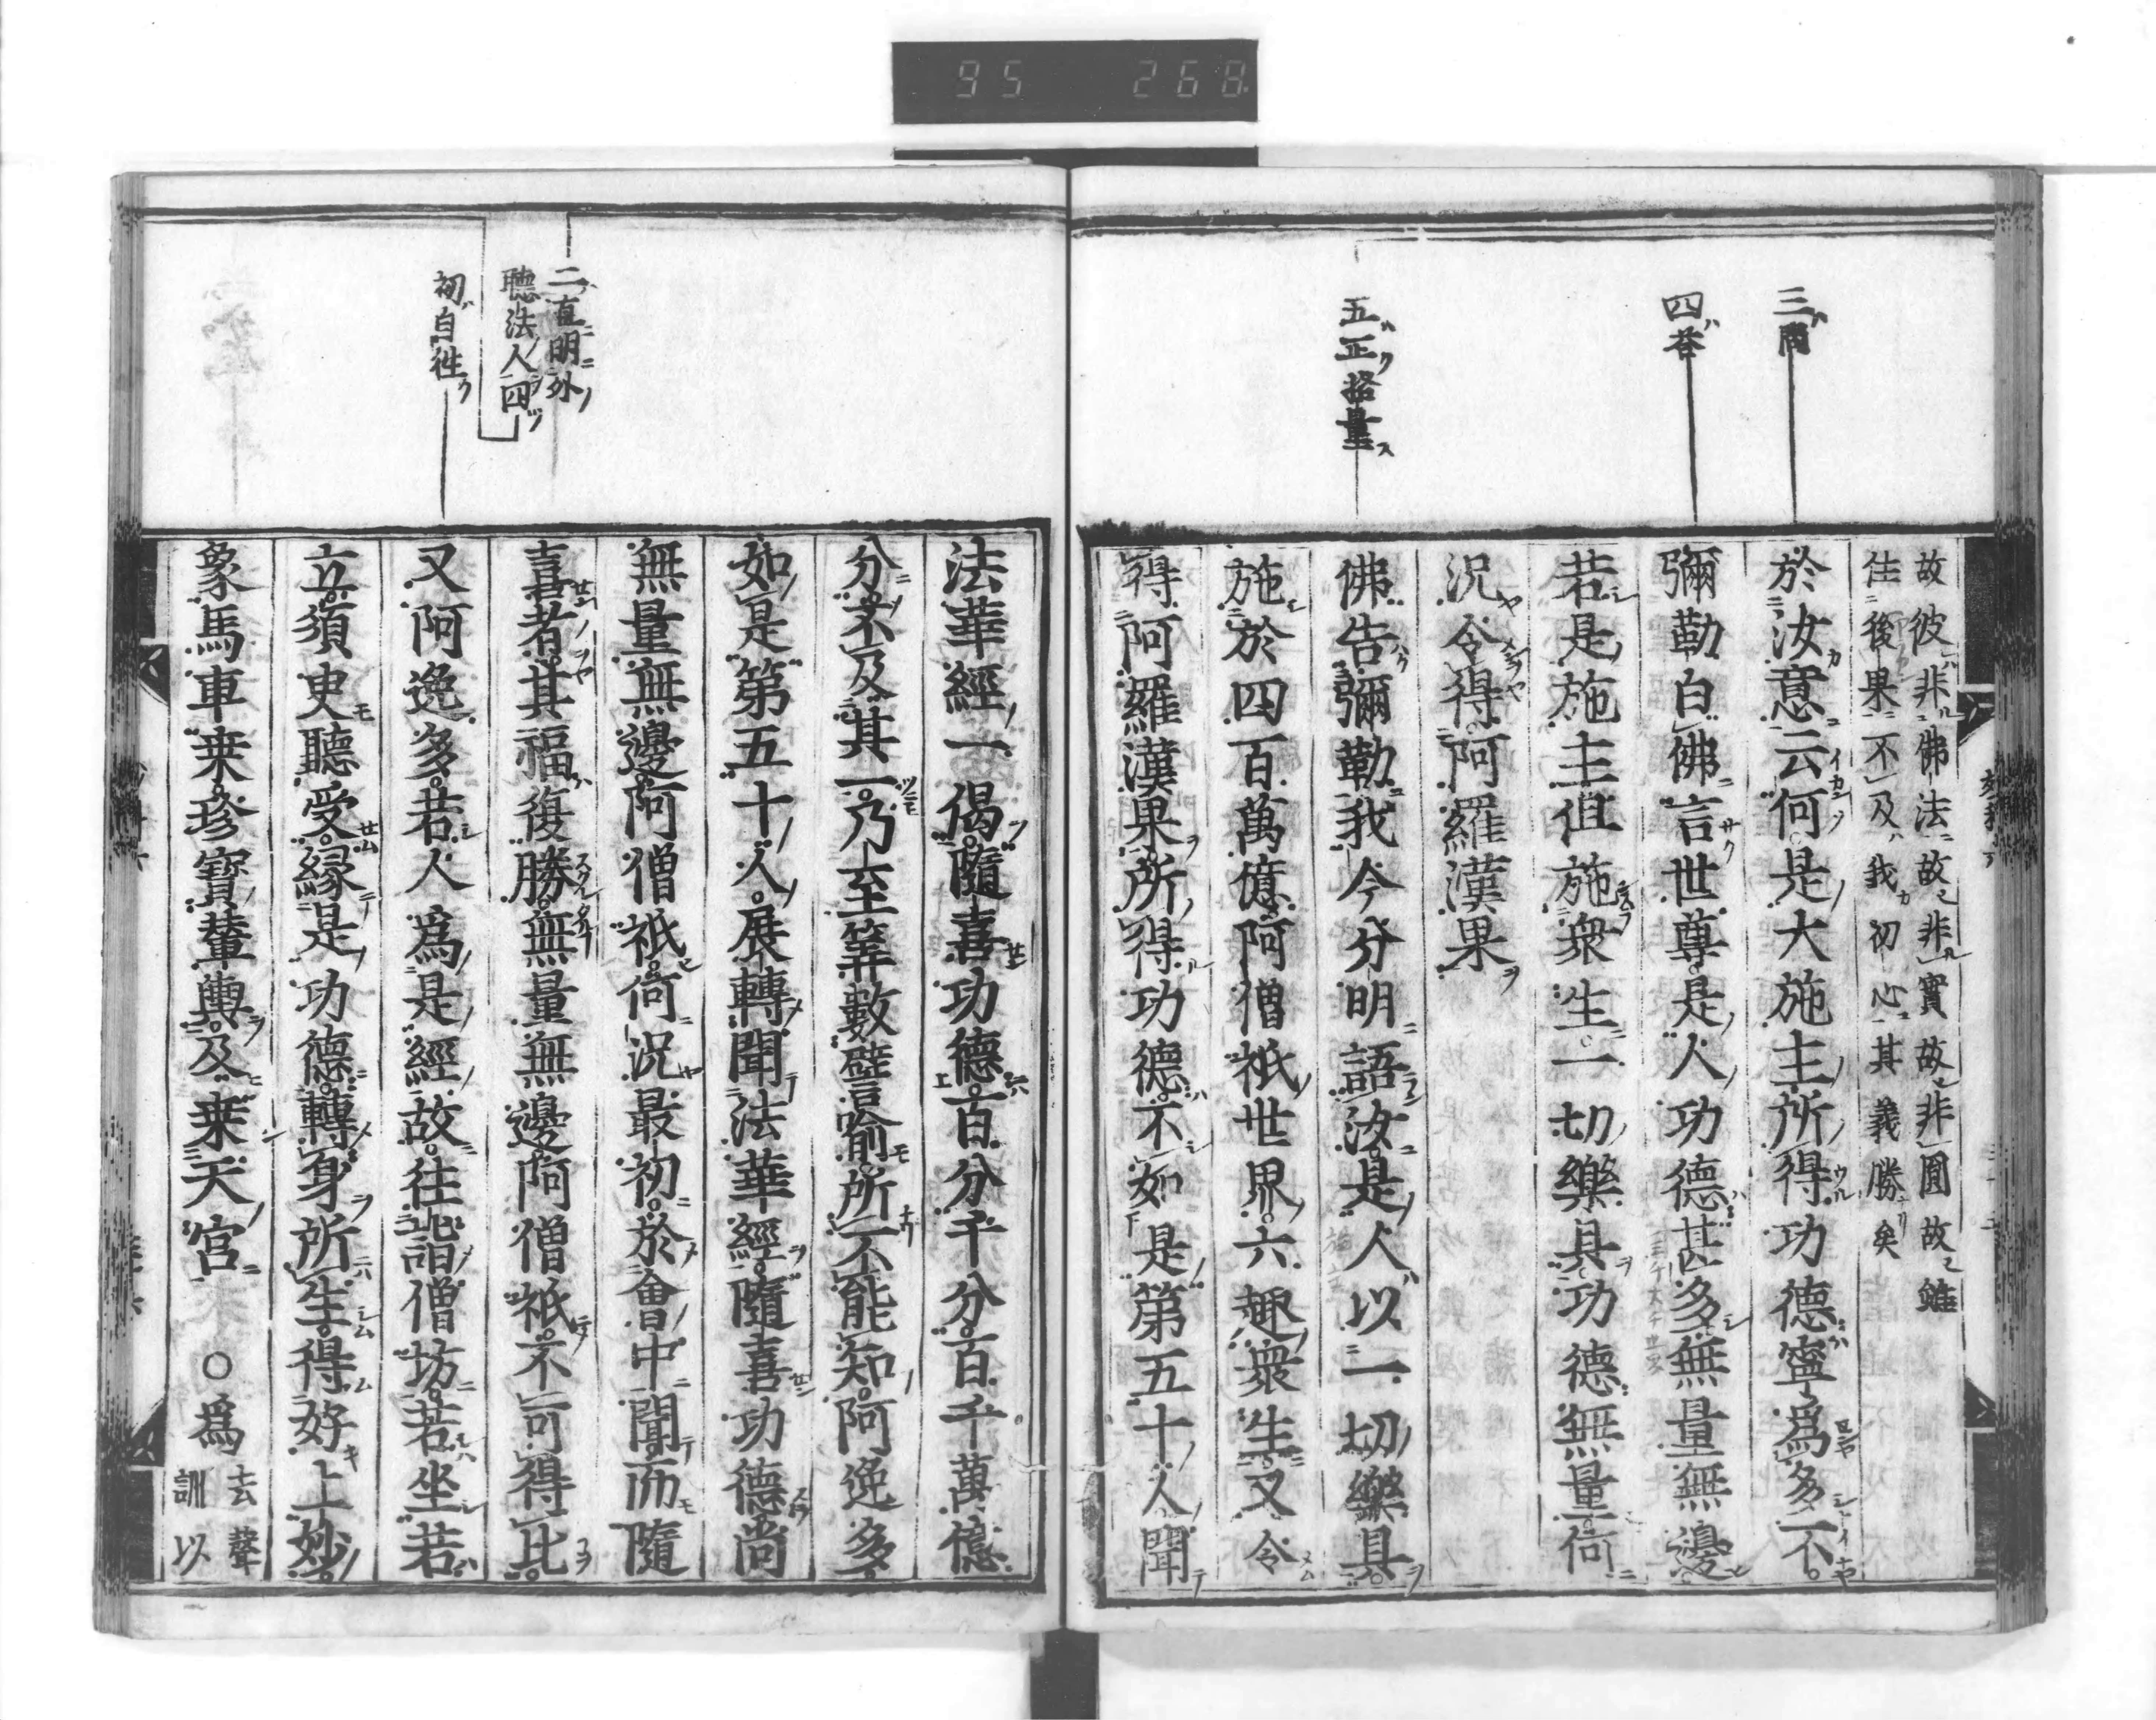 95 268
三問
四荅
五正挌量
故彼非佛法故非實故非圓故雖
住後果不及我初心其義勝矣
於汝意云何是大施主所得功德寧爲多不
彌勒白佛言世尊是人功德甚多無量無邊
若是施主但施衆生一切樂具功德無量何
況令得阿羅漢果
佛告彌勒我今分明語汝是人以一切樂具
施於四百萬億阿僧祇世界六趣衆生又令
得阿羅漢果所得功德不如是第五十人聞
二直明外
聽法人四
初自往
法華經一偈隨喜功德百分千分百千萬億
分不及其一乃至筭數譬喻所不能知阿逸多
如是第五十人展轉聞法華經隨喜功德尚
無量無邊阿僧祇何況最初於會中聞而隨
喜者其福復勝無量無邊阿僧祇不可得比
又阿逸多若人爲是經故往詣僧坊若坐若
立須臾聽受緣是功德轉身所生得好上妙
象馬車乗珍寶輦輿及乗天宮 ○爲
去聲
訓以